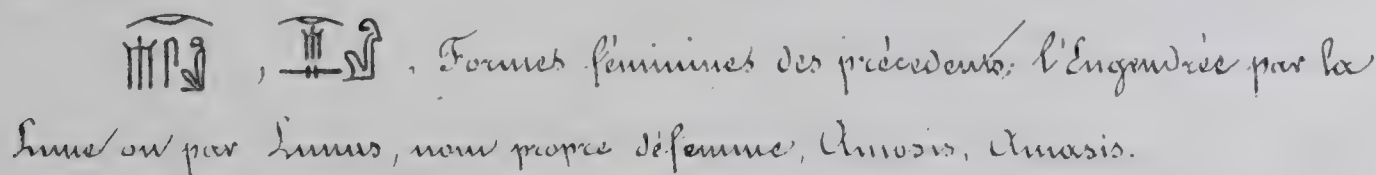 , . Formes féminines des précédents; l'Engendrée par la
Lune ou par Lunus, nom propre de femme, Amosis, Amasis.